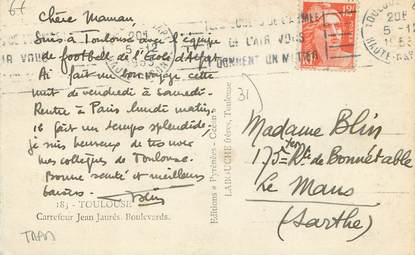 Chère Maman
Suis à Toulouse avec l'équipe
de football de l'École d'
Ai fait un bon voyage cette
nuit de vendredi à samedi.
Rentre à Paris lundi matin.
il fait un temps splendide,
je suis heureux de
mes collègues de Toulouse.
Bonne santé et meilleurs
baisers.
Blin
183 - TOULOUSE
Carrefour Jean Jaurès. Boulevards.
TRAM
Editions « Pyrénées - Océan »
LABOUCHE frères, Toulouse
31
DE L'AIR VOUS
DONNENT UN MÉTIER
TOULOUSE
5-12
HAUTE-
Madame Blin
175 Rte de Bonnétable
Le Mans
(Sarthe)